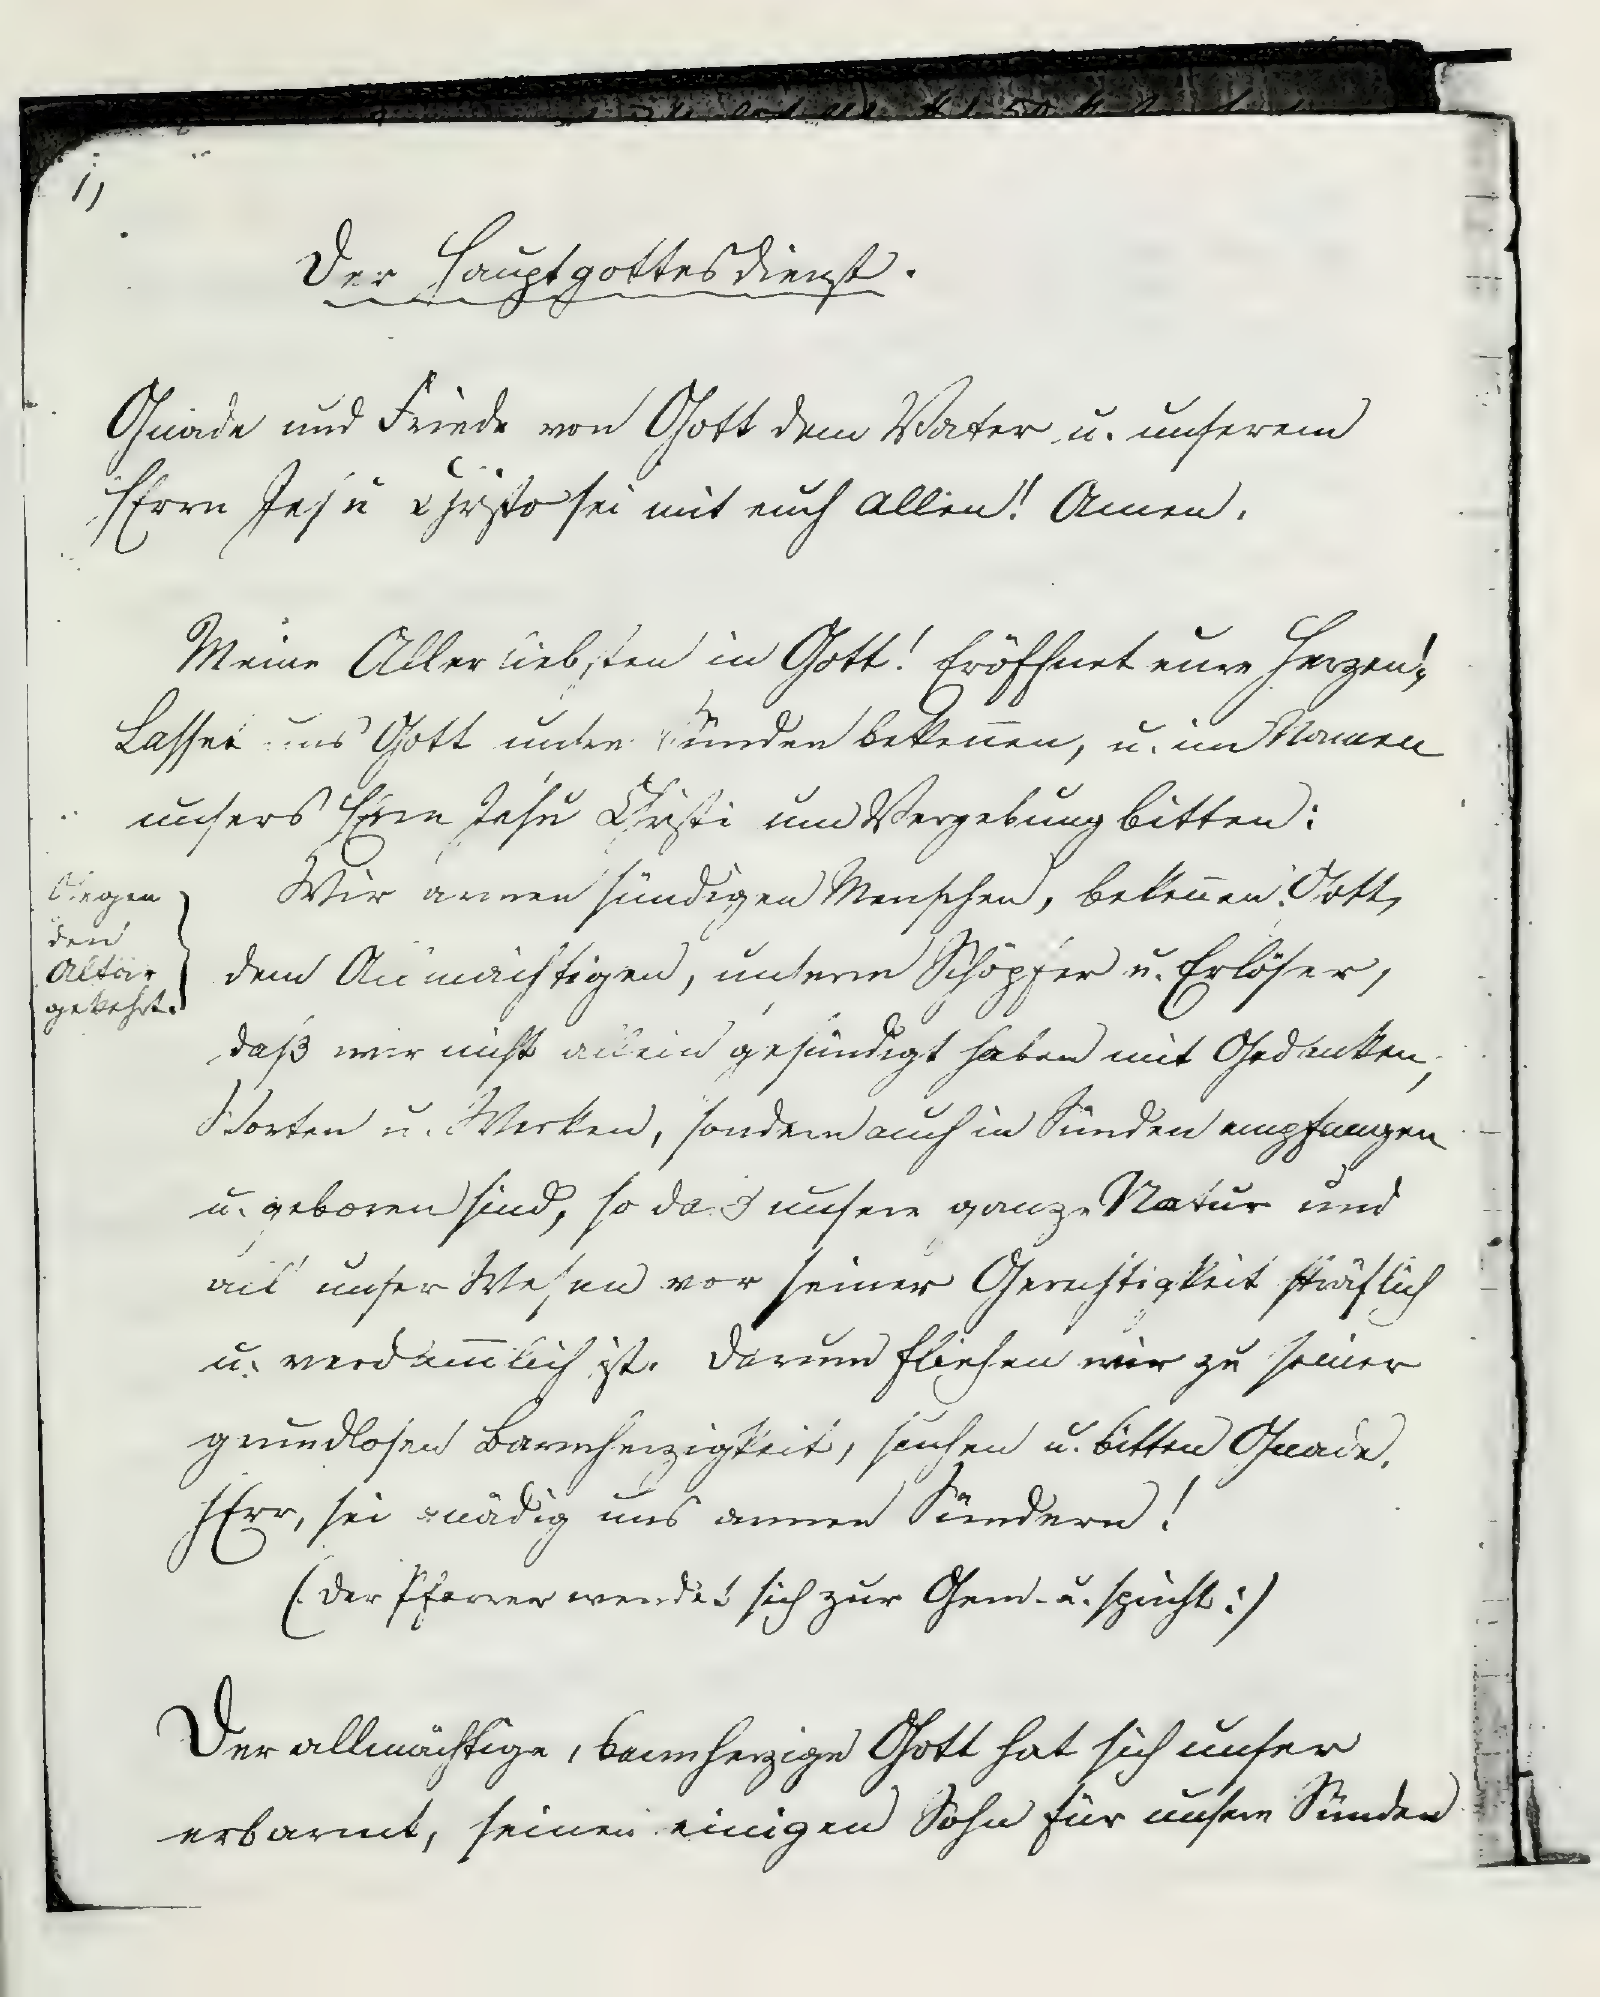 1,
Der Hauptgottesdienst.
Gnade und Friede von Gott dem Vater u. unserem
HErrn Jesu Christo sei mit euch allen! Amen.
Meine Allerliebsten in Gott! Eröffnet eure Herzen!,
Lasset uns Gott unsere Sünden bekeñen, u. im Namen
unsers HErrn Jesu Christi um Vergebung bitten:
Gegen
den
Altar
gekehrt.
Wir armen sündigen Menschen, bekeñen Gott,
dem Allmächtigen, unserm Schöpfer u. Erlöser,
daß wir nicht allein gesündigt haben mit Gedanken,
Worten u. Werken, sondern auch in Sünden empfangen
u. geboren sind, so daß unsere ganze Natur und
all unser Wesen vor seiner Gerechtigkeit sträflich
u. verdam̅lich ist. Darum fliehen wir zu seiner
grundlosen Barmherzigkeit, suchen u. bitten Gnade.
HErr, sei gnädig uns armen Sündern!
(: Der Pfarrer wendet sich zur Gem. u. spricht:)
Der allmächtige, barmherzige Gott hat sich unser
erbarmt, seinen einigen Sohn für unsere Sünden